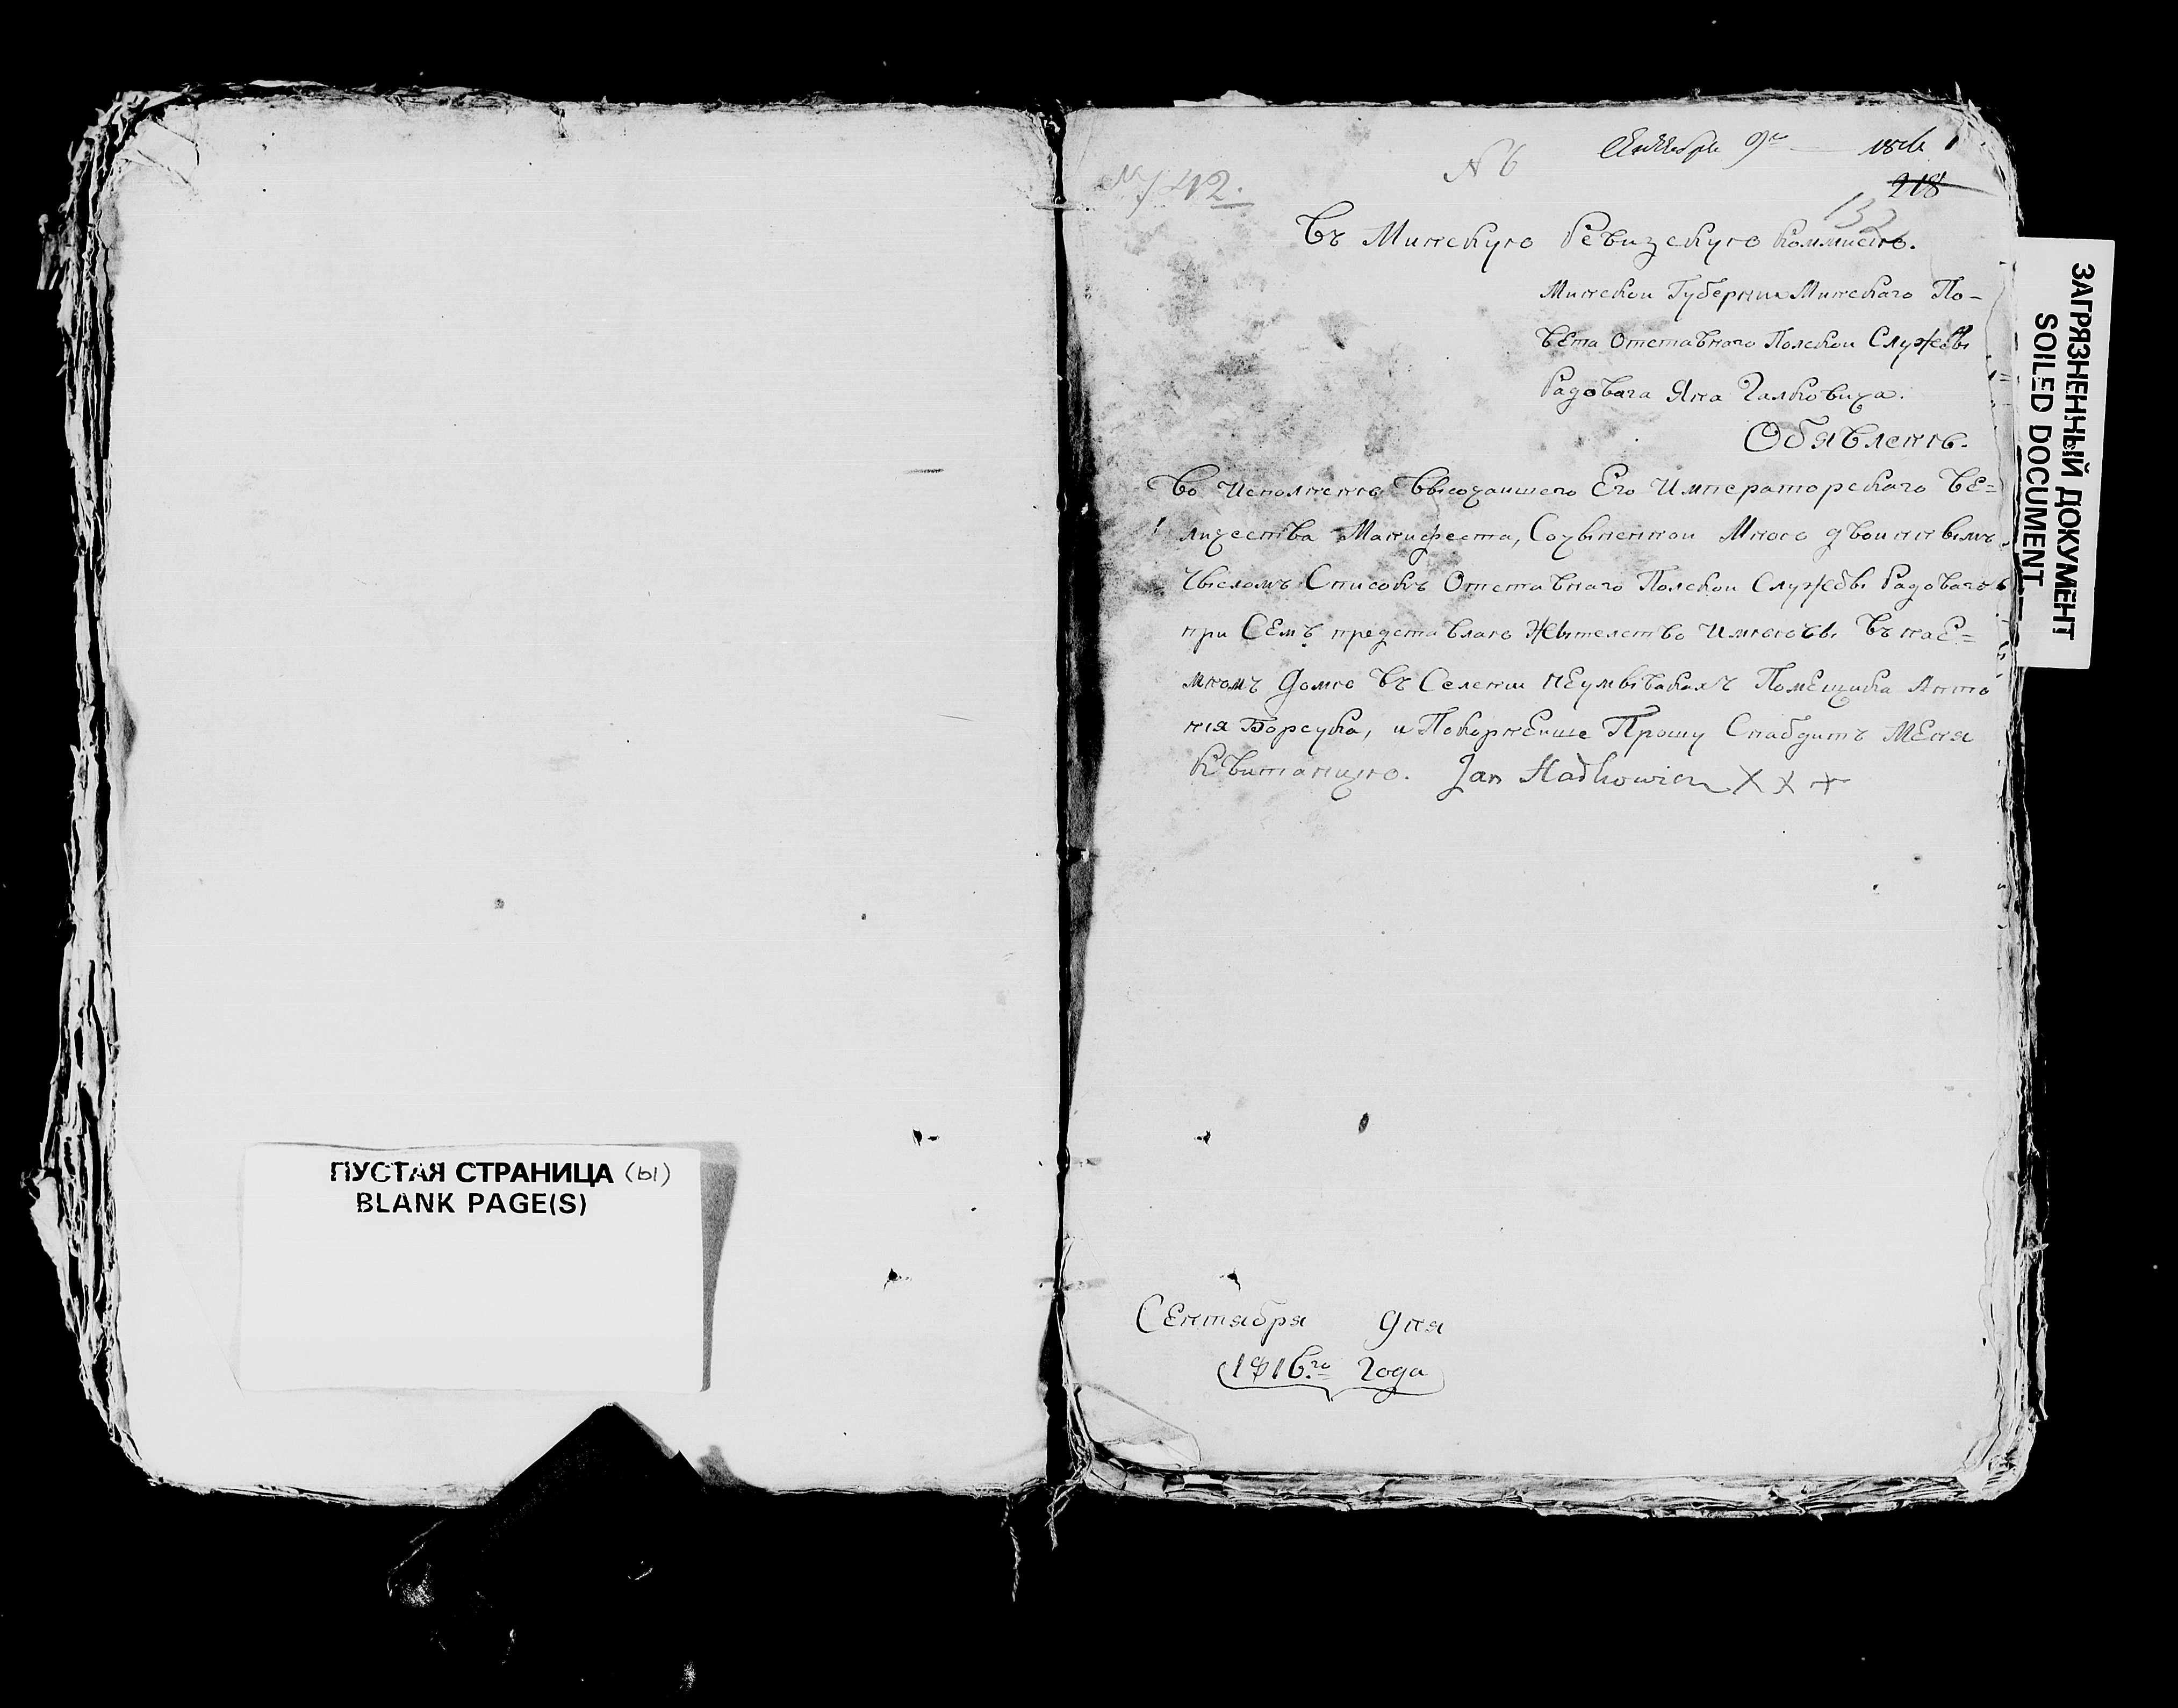 ПУСТАЯ СТРАНИЦА (ы)
BLANK PAGE(S)
ЗАГРЯЗНЕННЫЙ ДОКУМЕНТ
SOILED DOCUMENT
№ 142.
N 6
9го 1816 1
218
132
Въ Минскую Ревизскую Коммисию.
Минской Губернии Минскаго По-
вета Отставнаго Полской Службы
Радоваго Яна
Объявление.
Во Исполнение Высочаишего Его Императорского Ве=
личества Манифеста, Сочыненной Мною двоинымъ
Чысломъ Списокъ Отставнаго Полской Службы Радоваго
при Семъ представлаю Жытелство Имеющы въ нае=
мномъ Доме въ Селении Помещика Анто
ния Борсука, и Покорнеише Прошу Снабдить Меня
Квитанцию. Jan Hadkowicz X X +
Сентября Дня
1816го Года